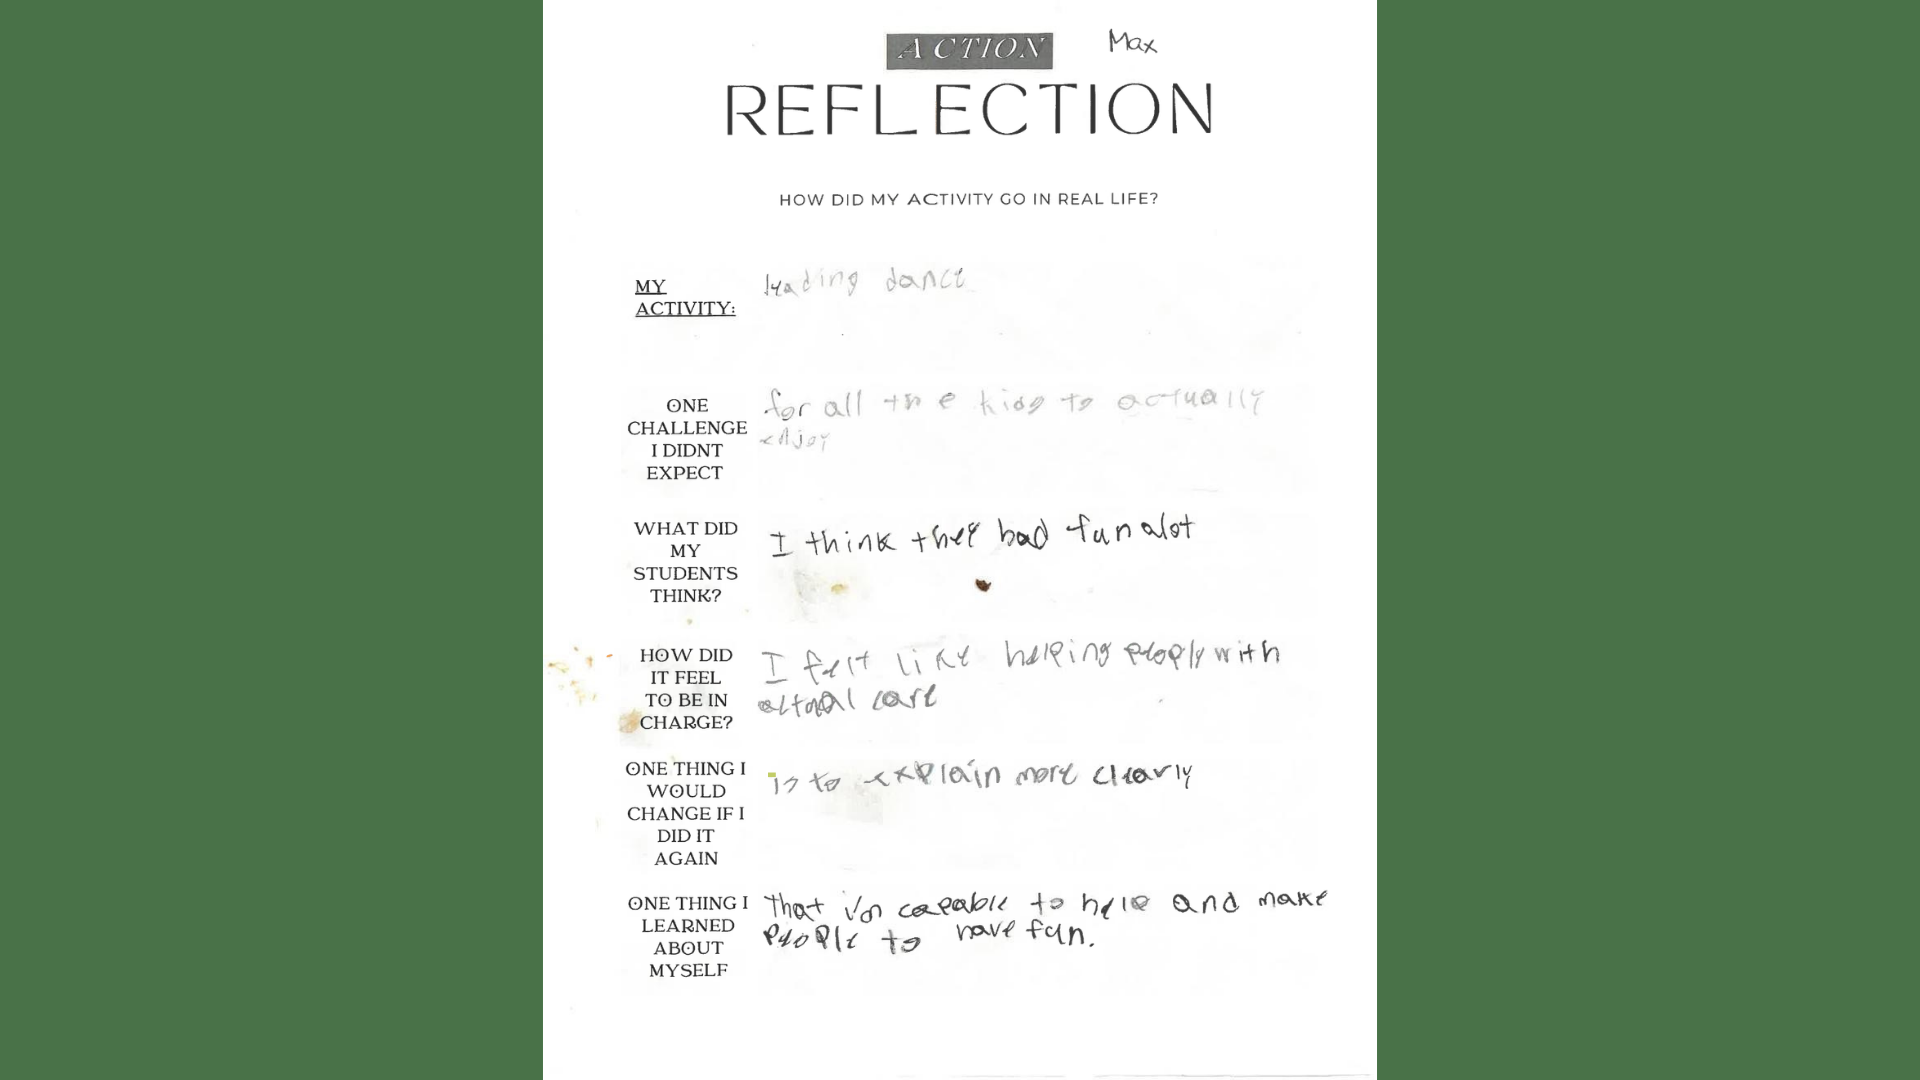 ACTION
Max
REFLECTION
HOW DID MY ACTIVITY GO IN REAL LIFE?
MY
ACTIVITY:
leading dance
ONE
CHALLENGE
I DIDNT
EXPECT
for all the kids to actually
enjoy
WHAT DID
MY
STUDENTS
THINK?
I think they had fun alot
HOW DID
IT FEEL
TO BE IN
CHARGE?
I felt like helping people with
actual care
ONE THING I
WOULD
CHANGE IF I
DID IT
AGAIN
is to explain more clearly
ONE THING I
LEARNED
ABOUT
MYSELF
That i'm capable to help and make
people to have fun.